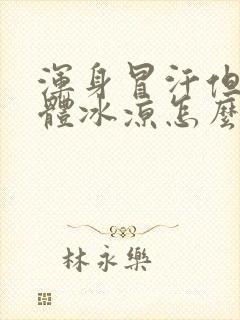 渾身冒汗但
體冰涼怎麼
林永樂